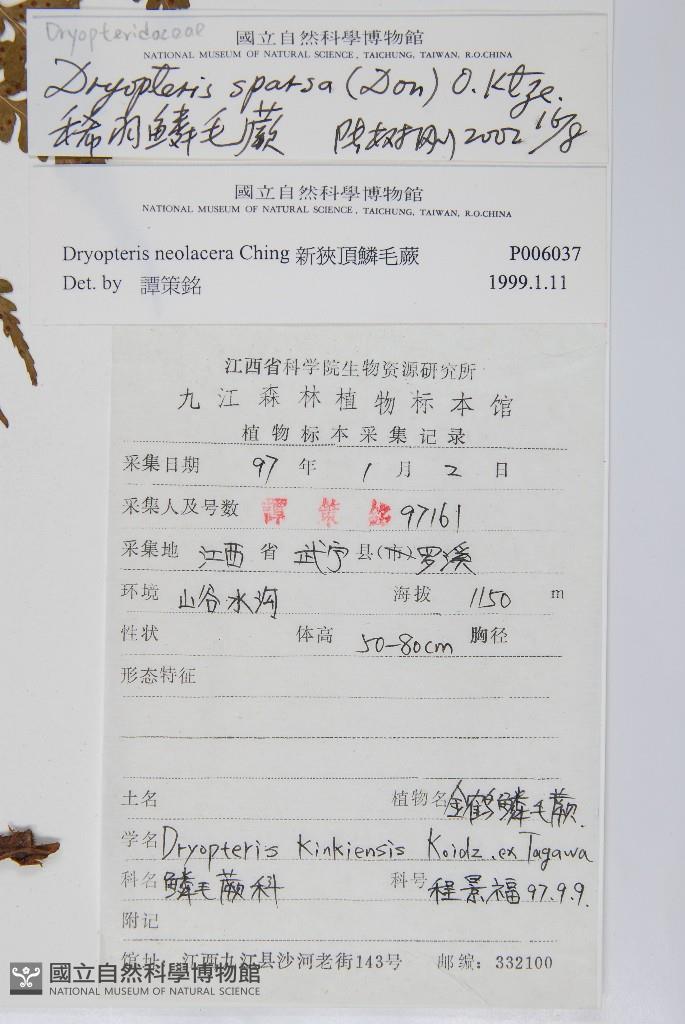 Dryopteridaceae
國立自然科學博物館
NATIONAL MUSEUM OF NATURAL SCIENCE, TAICHUNG, TAIWAN, R.O.CHINA
Dryopteris sparsa (Don) O. Ktze.
稀羽鱗毛蕨 2002 16/8
國立自然科學博物館
NATIONAL MUSEUM OF NATURAL SCIENCE, TAICHUNG, TAIWAN, R.O.CHINA
Dryopteris neolacera Ching 新狹頂鱗毛蕨 P006037
Det. by 譚策銘 1999.1.11
江西省科学院生物资源研究所
九江森林植物标本馆
植物标本采集记录
采集日期 97 年 1 月 2 日
采集人及号数 譚策銘 97161
采集地 江西 省 武宁 县(市) 罗溪
环境 山谷水沟 海拔 1150 m
性状 体高 50-80cm 胸径
形态特征
土名 植物名 金鹤鳞毛蕨
学名 Dryopteris kinkiensis Koidz. ex Tagawa
科名 鳞毛蕨科 科号 程景福 97.9.9.
附记
馆址 江西九江县沙河老街143号 邮编: 332100
國立自然科學博物館
NATIONAL MUSEUM OF NATURAL SCIENCE